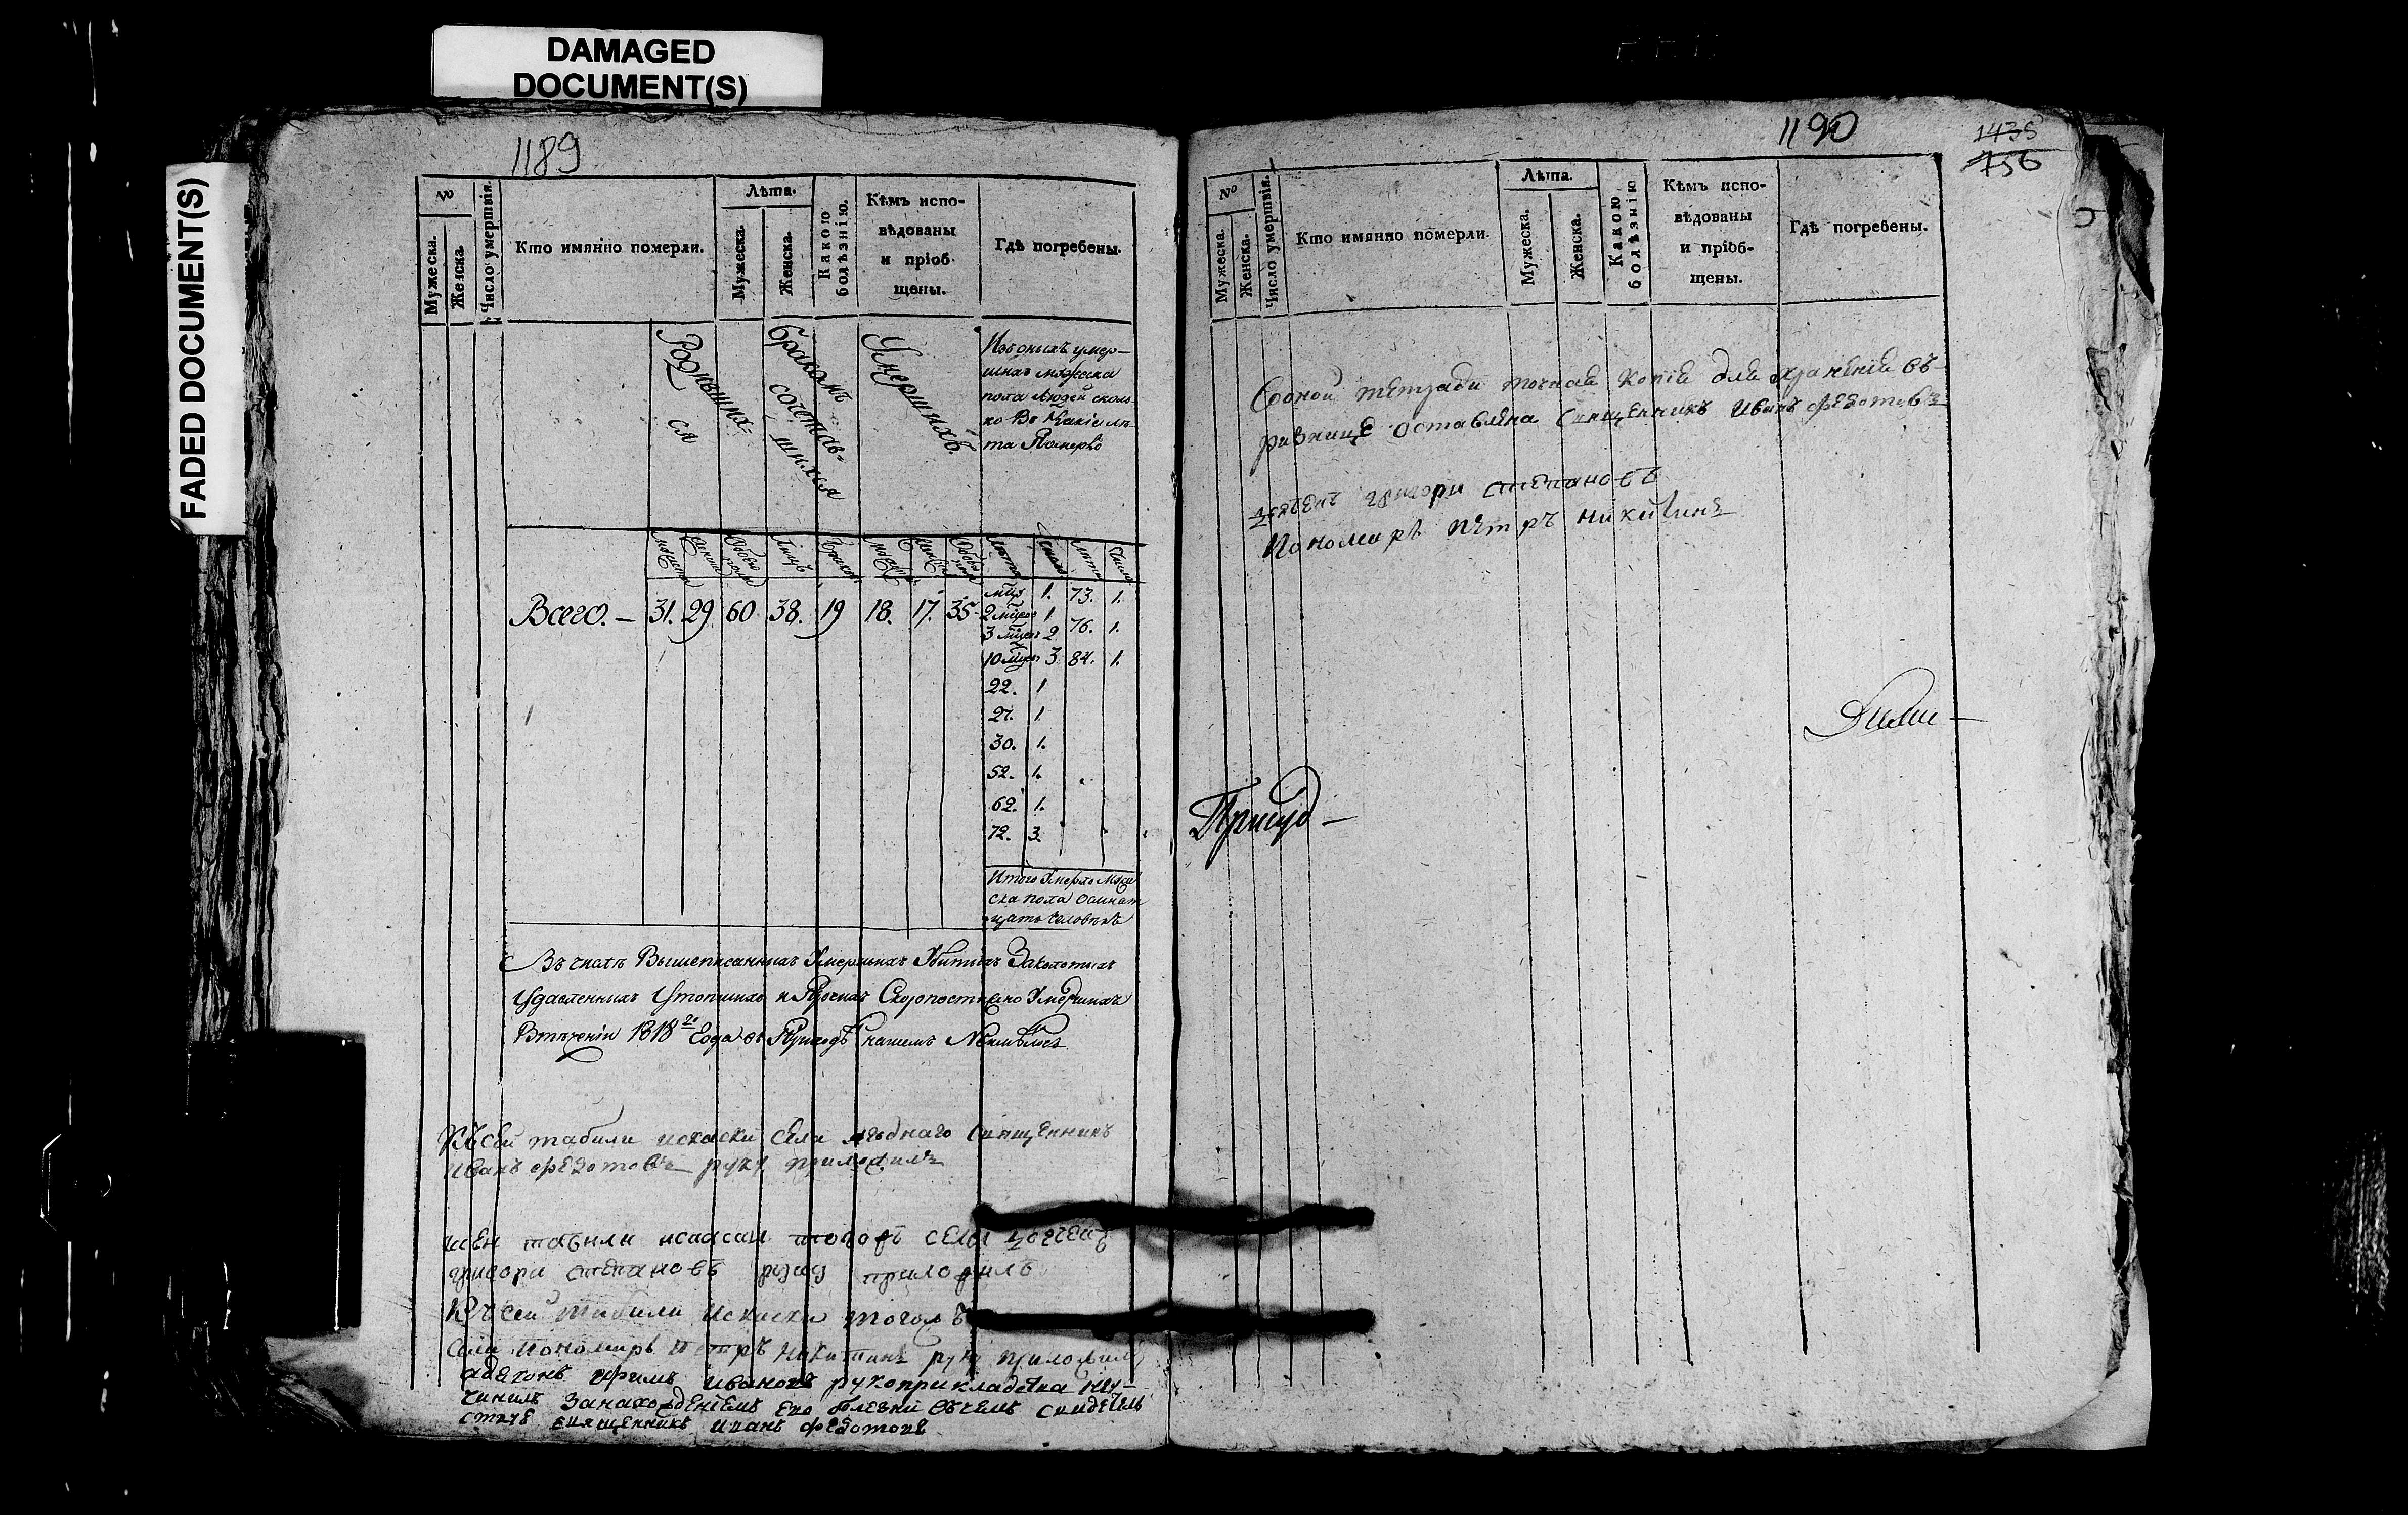 DAMAGED
DOCUMENT(S)
FADED DOCUMENT(S)
1189
№
Мужеска.
Женска.
Число умершвія.
Кто имянно померли.
Лѣта.
Мужеска.
Женска.
Какою болѣзнію.
Кѣмъ испо-
вѣдованы
и пріоб-
щены.
Гдѣ погребены.
Родивших-
ся
Бракомъ
сочетав-
шихся
Умершихъ
Изъ оныхъ умер-
шихъ мужеска
пола людей сколь-
ко въ какіе лѣ-
та померло
Обоево пола
Лицъ
Браковъ
Обоево пола
Лѣта
Число
Лѣта
Число
Всего. — 31. 29 60. 38. 19 18. 17. 35.
1. 73. 1.
2 1
3 2 76. 1.
10 3 84. 1.
22. 1
27. 1
30. 1.
52. 1.
62. 1.
72. 3.
Итого умерло муже
ска пола осмнат
цать человѣкъ
Въ числѣ вышеписанныхъ умершихъ убитыхъ заколотыхъ
удавленныхъ утопшихъ и прочихъ скоропостижно умершихъ
втеченіи 1818го года въ приходѣ нашемъ неимѣлось
Къ сей табили искаски села мѣднаго священникъ
иванъ федотовъ руку приложилъ
табили искаски тогожъ села дьяченъ
григори степановъ руку приложилъ
Къ сей табили искаски тогожъ
села пономарь петръ никитинъ руку приложилъ
адьяконъ ефимъ ивановъ рукоприкладства неу-
чинилъ занахожденіемъ ево болезни вчемъ свидетель
ствуе священникъ иванъ федотовъ
1190
1435
756
№
Мужеска.
Женска.
Число умершвія.
Кто имянно померли.
Лѣта.
Мужеска.
Женска.
Какою болѣзнію
Кѣмъ испо-
вѣдованы
и пріоб-
щены.
Гдѣ погребены.
Соной тетради точная копія для храненія въ-
ризнице оставлена священникъ иванъ федотовъ
дьяченъ григори степановъ
Пономарь петръ никитинъ